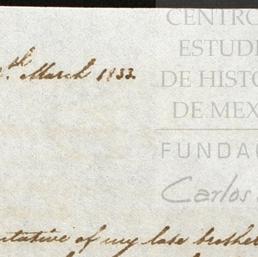 CENTRO
ESTUDI
DE HISTO
DE MEX
FUNDA
Carlos
th March 1833.
tative of my late brother